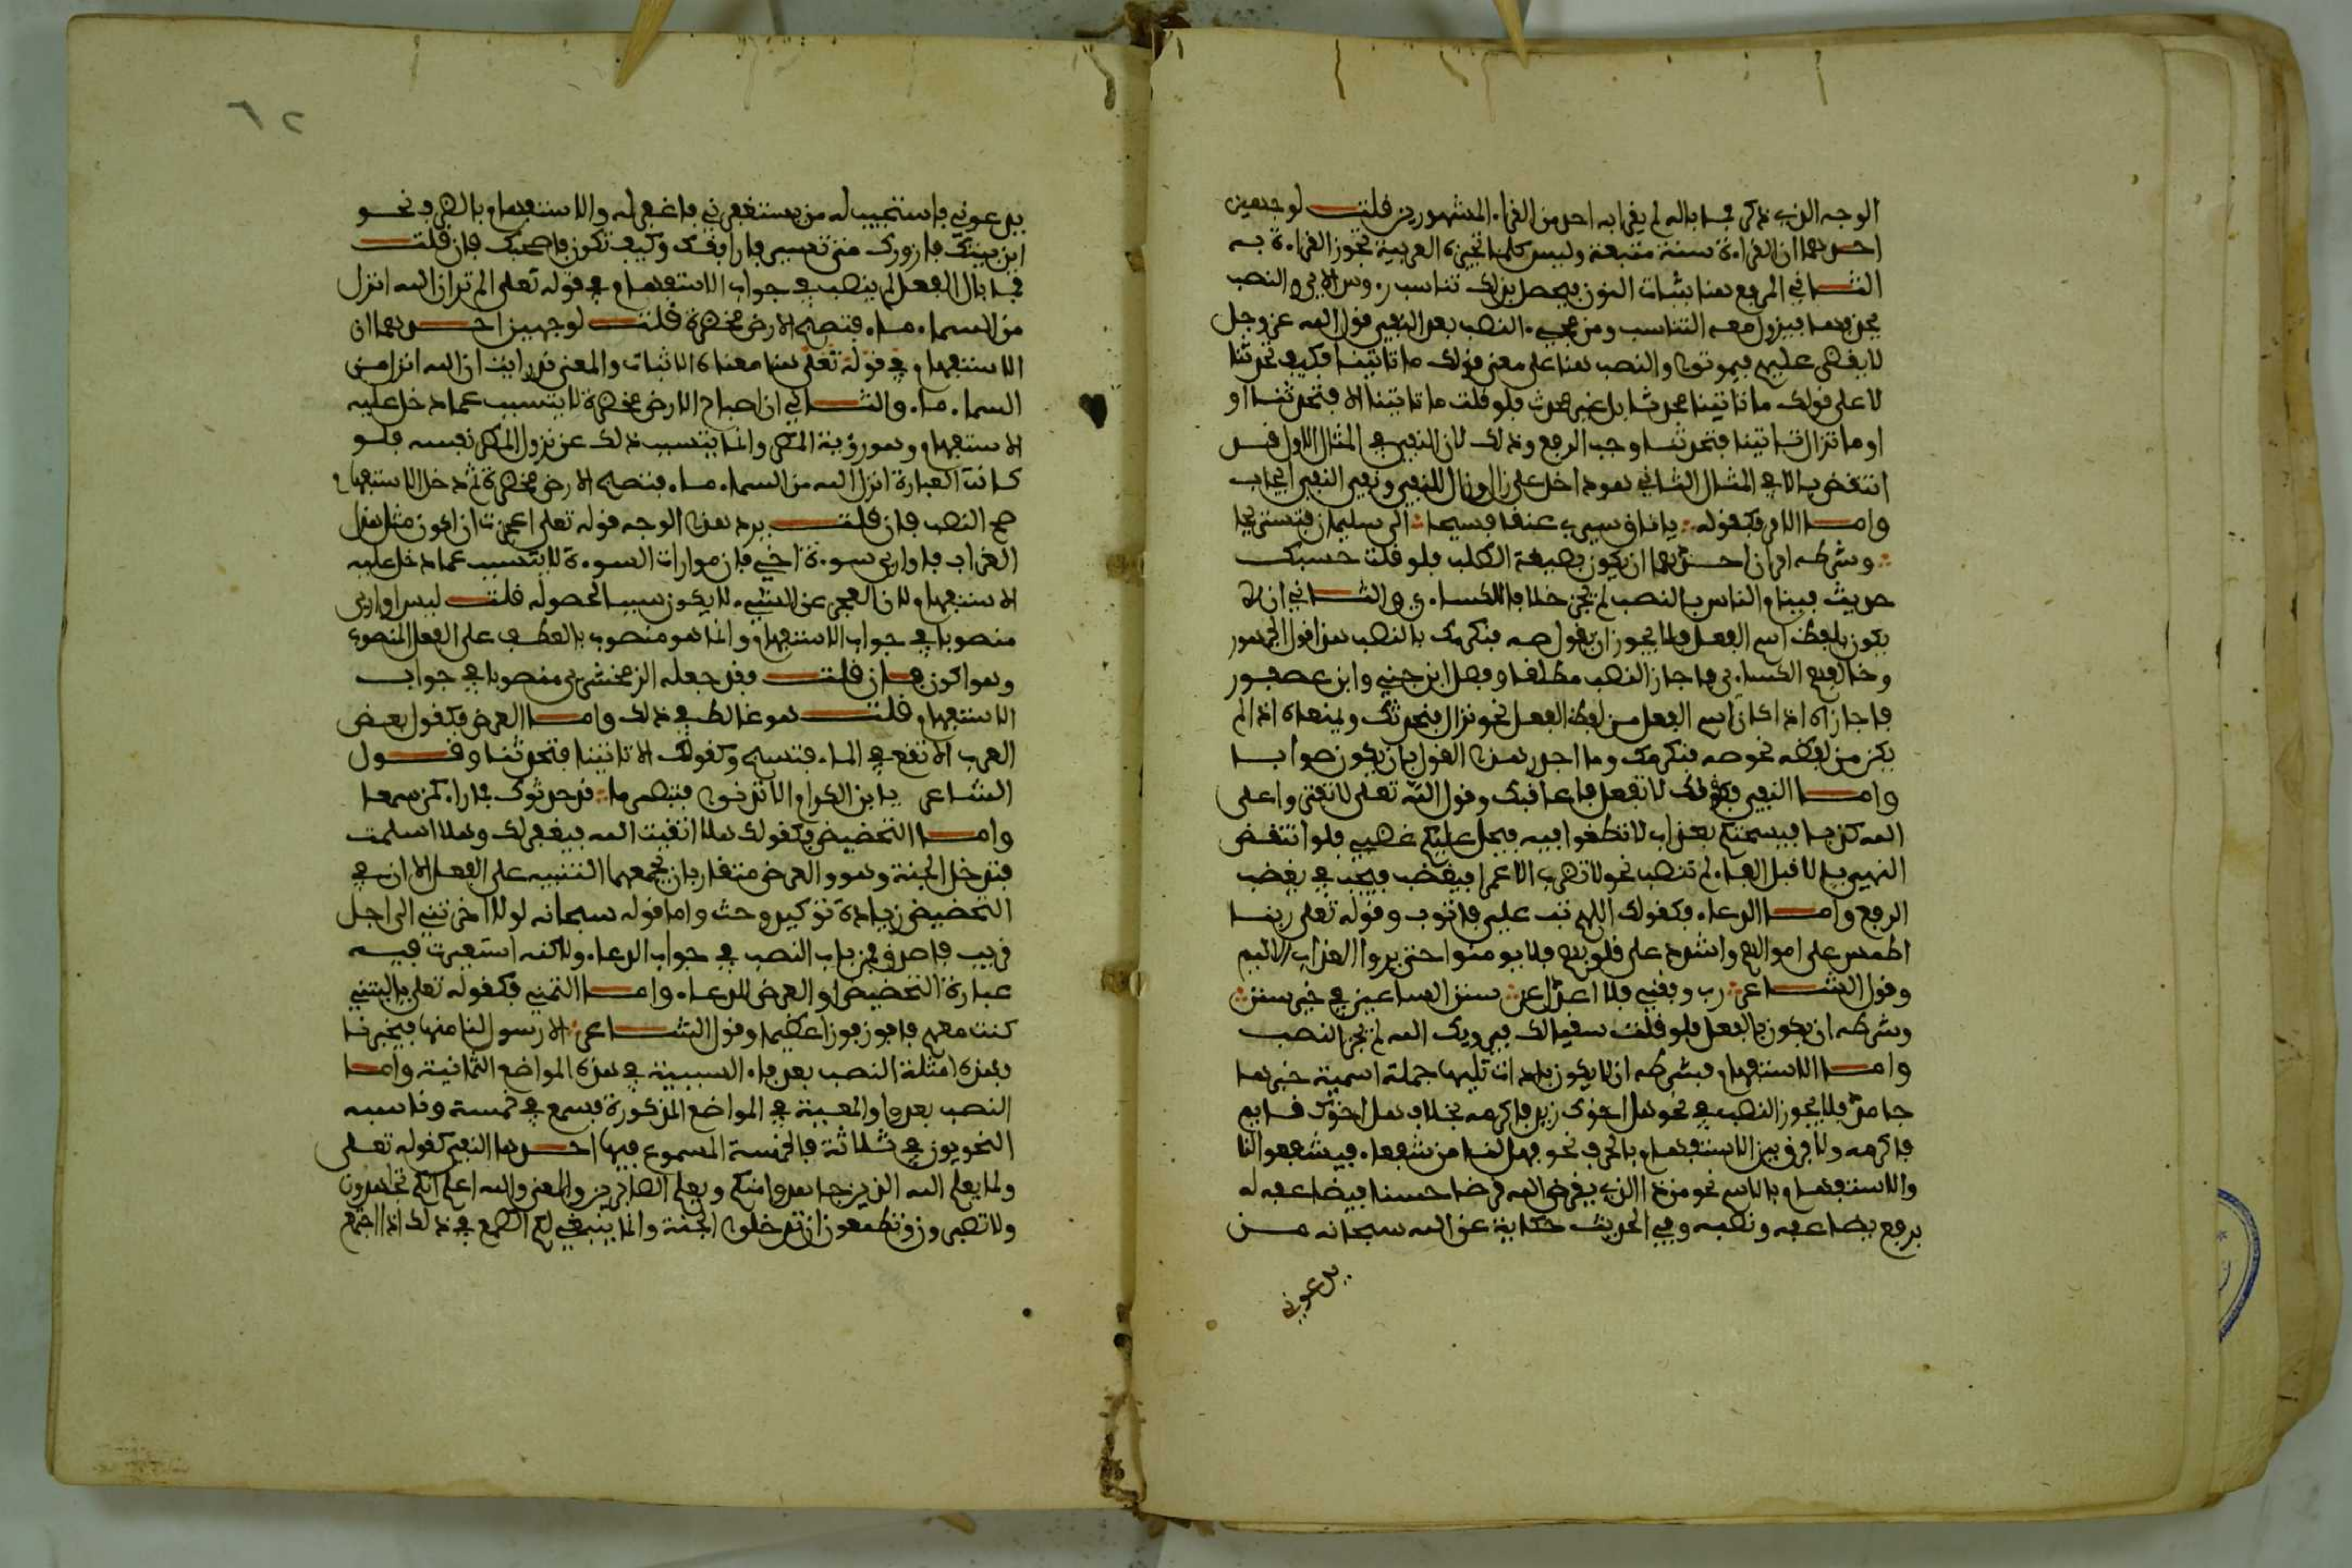 الوجه الذي ذكر فما باله لم يقرا به احد من القراء المشهورين قلت لوجهين
احدهما ان القراءة سنة متبعة وليس كلما تجيزه العربية تجوز القراءة به
الثاني الرفع هنا بثبات النون فيحصل بذلك تناسب رءوس الآي والنصب
بحذفها فيزول معه التناسب ومن مجيء النصب بعد النفي قول الله عز وجل
لا يقضى عليهم فيموتوا والنصب هنا على معنى قولك ما تاتينا فكيف تحدثنا
لا على قولك ما تاتينا محدثا بل غير محدث فلو قلت ما تاتينا الا فتحدثنا او
او ما تزال تاتينا فتحدثنا وجب الرفع وذلك لان النفي في المثال الاول قد
انتقض بالا في المثال الثاني هو داخل على زال وزال للنفي ونفي النفي ايجاب
واما الامر فكقوله يا ناق سيري عنقا فسيحا الى سليمان فنستريحا
وشرطه امران احدهما ان يكون بصيغة الطلب فلو قلت حسبك
حديث فينام الناس بالنصب لم يجز خلافا للكساءي والثاني ان لا
يكون بلفظ اسم الفعل فلا يجوز ان يقول صه فنكرمك بالنصب هذا قول الجمهور
وخالفهم الكساءي فاجاز النصب مطلقا وفصل ابن جني وابن عصفور
فاجازاه اذا كان اسم الفعل من لفظ الفعل نحو نزال فنحدثك ومنعاه اذا لم
يكن من لفظه نحو صه فنكرمك وما اجدر هذا القول بان يكون صوابا
واما النهي فكقولك لا تفعل فاعاقبك وقول الله تعلى لا تفتروا على
الله كذبا فيسحتكم بعذاب لا تطغوا فيه فيحل عليكم غضبي فلو انتقض
النهي بالا قبل الفاء لم تنصب نحو لا تضرب الا عمرا فيغضب فيجب في يغضب
الرفع واما الدعاء فكقولك اللهم تب علي فاتوب وقوله تعلى ربنا
اطمس على اموالهم واشدد على قلوبهم فلا يومنوا حتى يروا العذاب الاليم
وقول الشاعر رب وفقني فلا اعدل عن سنن الساعين في خير سنن
وشرطه ان يكون بالفعل فلو قلت سقيا لك فيرويك الله لم يجز النصب
واما الاستفهام فشرطه ان لا يكون باداة تليها جملة اسمية خبرها
جامد فلا يجوز النصب في نحو هل اخوك زيد فاكرمه بخلاف هل اخوك قايم
فاكرمه ولا فرق بين الاستفهام بالحرف نحو فهل لنا من شفعاء فيشفعوا لنا
والاستفهام بالاسم نحو من ذا الذي يقرض الله قرضا حسنا فيضاعفه له
برفع يضاعفه ونصبه وفي الحديث حكاية عن الله سبحانه من
يدعوني
٦٢
يدعوني فاستجيب له من يستغفرني فاغفر له والاستفهام بالظرف نحو
اين بيتك فازورك متى تسير فارافقك وكيف تكون فاصحبك فان قلت
فما بال الفعل لم ينصب في جواب الاستفهام في قوله تعلى الم تر ان الله انزل
من السماء ماء فتصبح الارض مخضرة قلت لوجهين احدهما ان
الاستفهام في قوله تعلى هنا معناه الاثبات والمعنى قد رايت ان الله انزل من
السماء ماء والثاني ان اصباح الارض مخضرة لا يتسبب عما دخل عليه
الاستفهام وهو رؤية المطر وانما يتسبب ذلك عن نزول المطر نفسه فلو
كانت العبارة انزل الله من السماء ماء فتصبح الارض مخضرة ثم دخل الاستفهام
صح النصب فان قلت يرد هذا الوجه قوله تعلى اعجزت ان اكون مثل هذا
الغراب فاواري سوءة اخي فان موارات السوءة لا يتسبب عما دخل عليه
الاستفهام لان العجز عن الشيء لا يكون سببا لحصوله قلت ليس اواري
منصوبا في جواب الاستفهام وانما هو منصوب بالعطف على الفعل المنصوب
وهو اكون فان قلت فقد جعله الزمخشري منصوبا في جواب
الاستفهام قلت هو غالط في ذلك واما العرض فكقول بعض
العرب الا تقع في الماء فتسبح وكقولك الا تاتينا فتحدثنا وقول
الشاعر يا ابن الكرام الا تدنوا فتبصر ما قد حدثوك فما راء كمن سمعا
واما التحضيض فكقولك هلا اتقيت الله فيغفر لك وهلا اسلمت
فتدخل الجنة وهو والعرض متقاربان يجمعهما التنبيه على الفعل الا ان في
التحضيض زيادة توكيد وحث واما قوله سبحانه لولا اخرتني الى اجل
قريب فاصدق فمن باب النصب في جواب الدعاء ولاكنه استعيرت فيه
عبارة التحضيض او العرض للدعاء واما التمني فكقوله تعلى يا ليتني
كنت معهم فافوز فوزا عظيما وقول الشاعر الا رسول لنا منها فيخبرنا
فهذه امثلة النصب بعد فاء السببية في هذه المواضع الثمانية واما
النصب بعد واو المعية في المواضع المذكورة فسمع في خمسة وقاسه
النحويون في ثلاثة فالخمسة المسموع فيها احدها النفي كقوله تعلى
ولما يعلم الله الذين جاهدوا منكم ويعلم الصابرين والمعنى والله اعلم انكم تجاهدون
ولا تصبرون وتطمعون ان تدخلوا الجنة وانما ينبغي لكم الطمع في ذلك اذا اجتمع